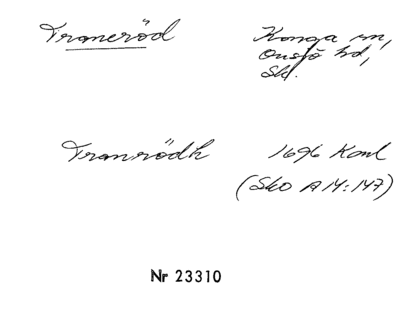 Traneröd
Konga sn,
Onsjö hd,
Skl.
Tranrödh
1696 Koml
(Sko A 14:147)
Nr 23310